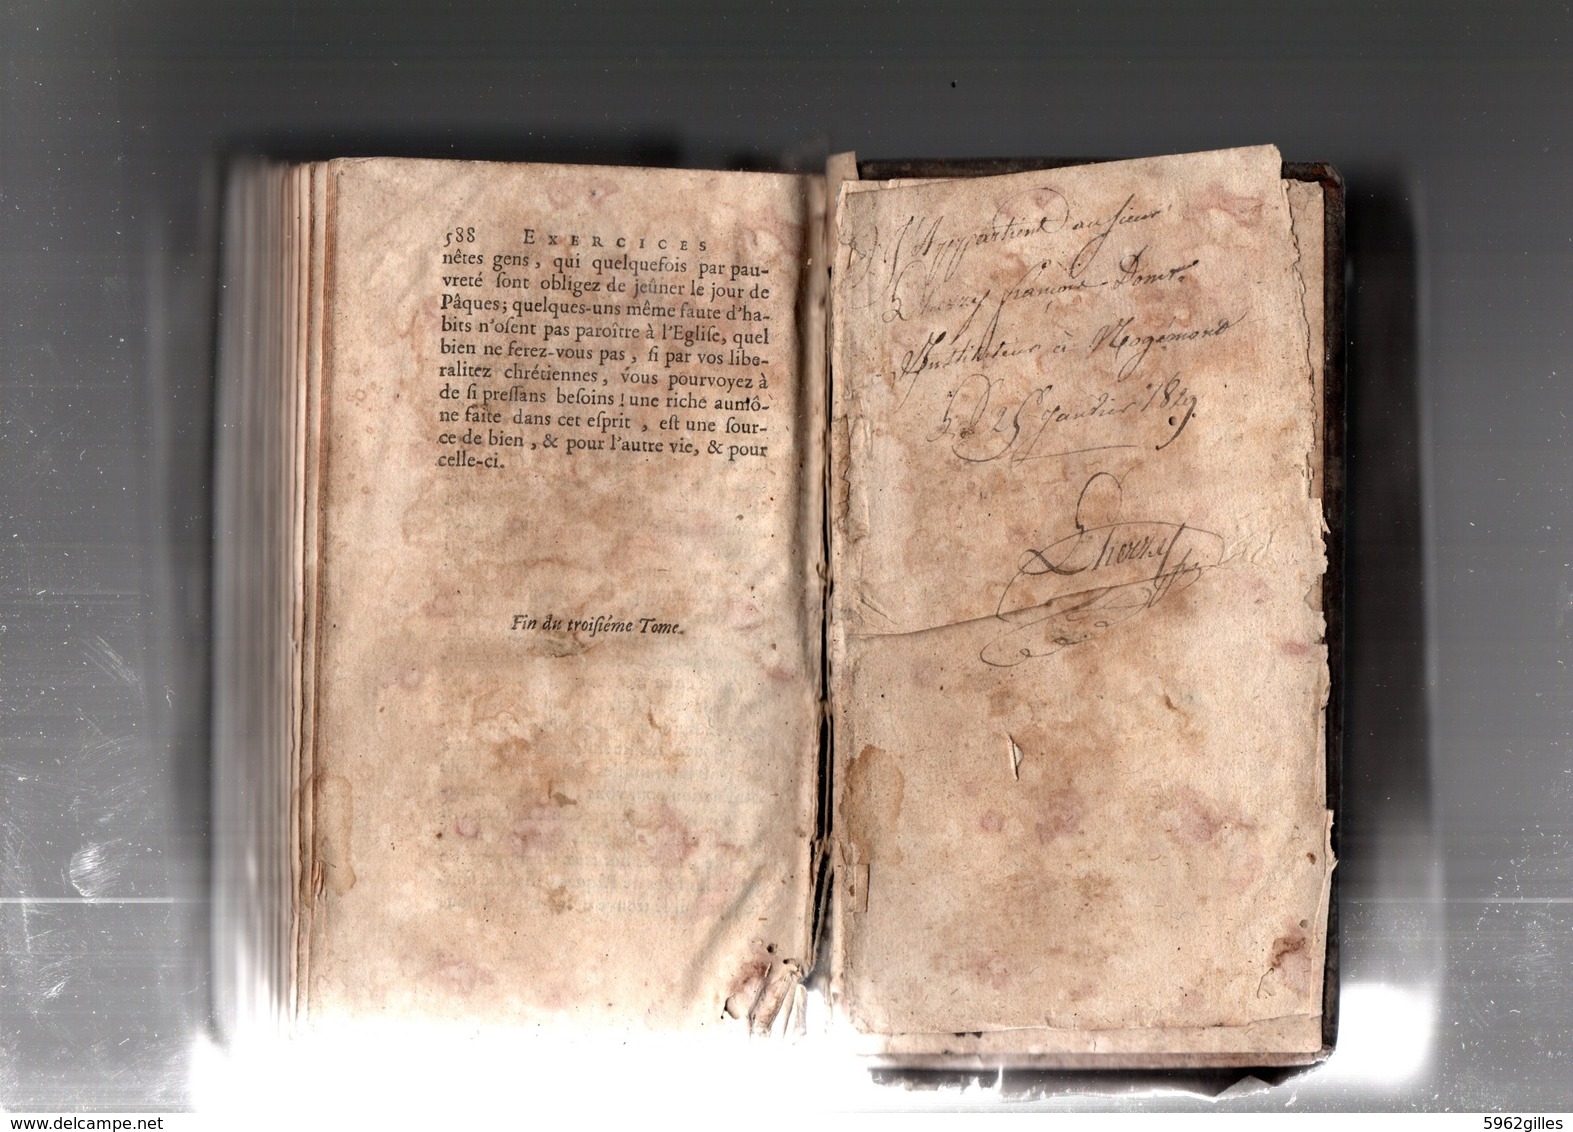 588 EXERCICES
nêtes gens, qui quelquefois par pau-
vreté ſont obligez de jeûner le jour de
Pâques; quelques-uns même faute d'ha-
bits n'oſent pas paroître à l'Egliſe, quel
bien ne ferez-vous pas, ſi par vos libe-
ralitez chrétiennes, vous pourvoyez à
de ſi preſſans beſoins! une riche aumô-
ne faite dans cet eſprit, eſt une ſour-
ce de bien, & pour l'autre vie, & pour
celle-ci.
Fin du troiſiéme Tome.
Appartient au ſieur
Lherry françois Domq.
Instituteur à Nogémont
Le 25 Janvier 1819.
Lherry
www.delcampe.net
5962gilles